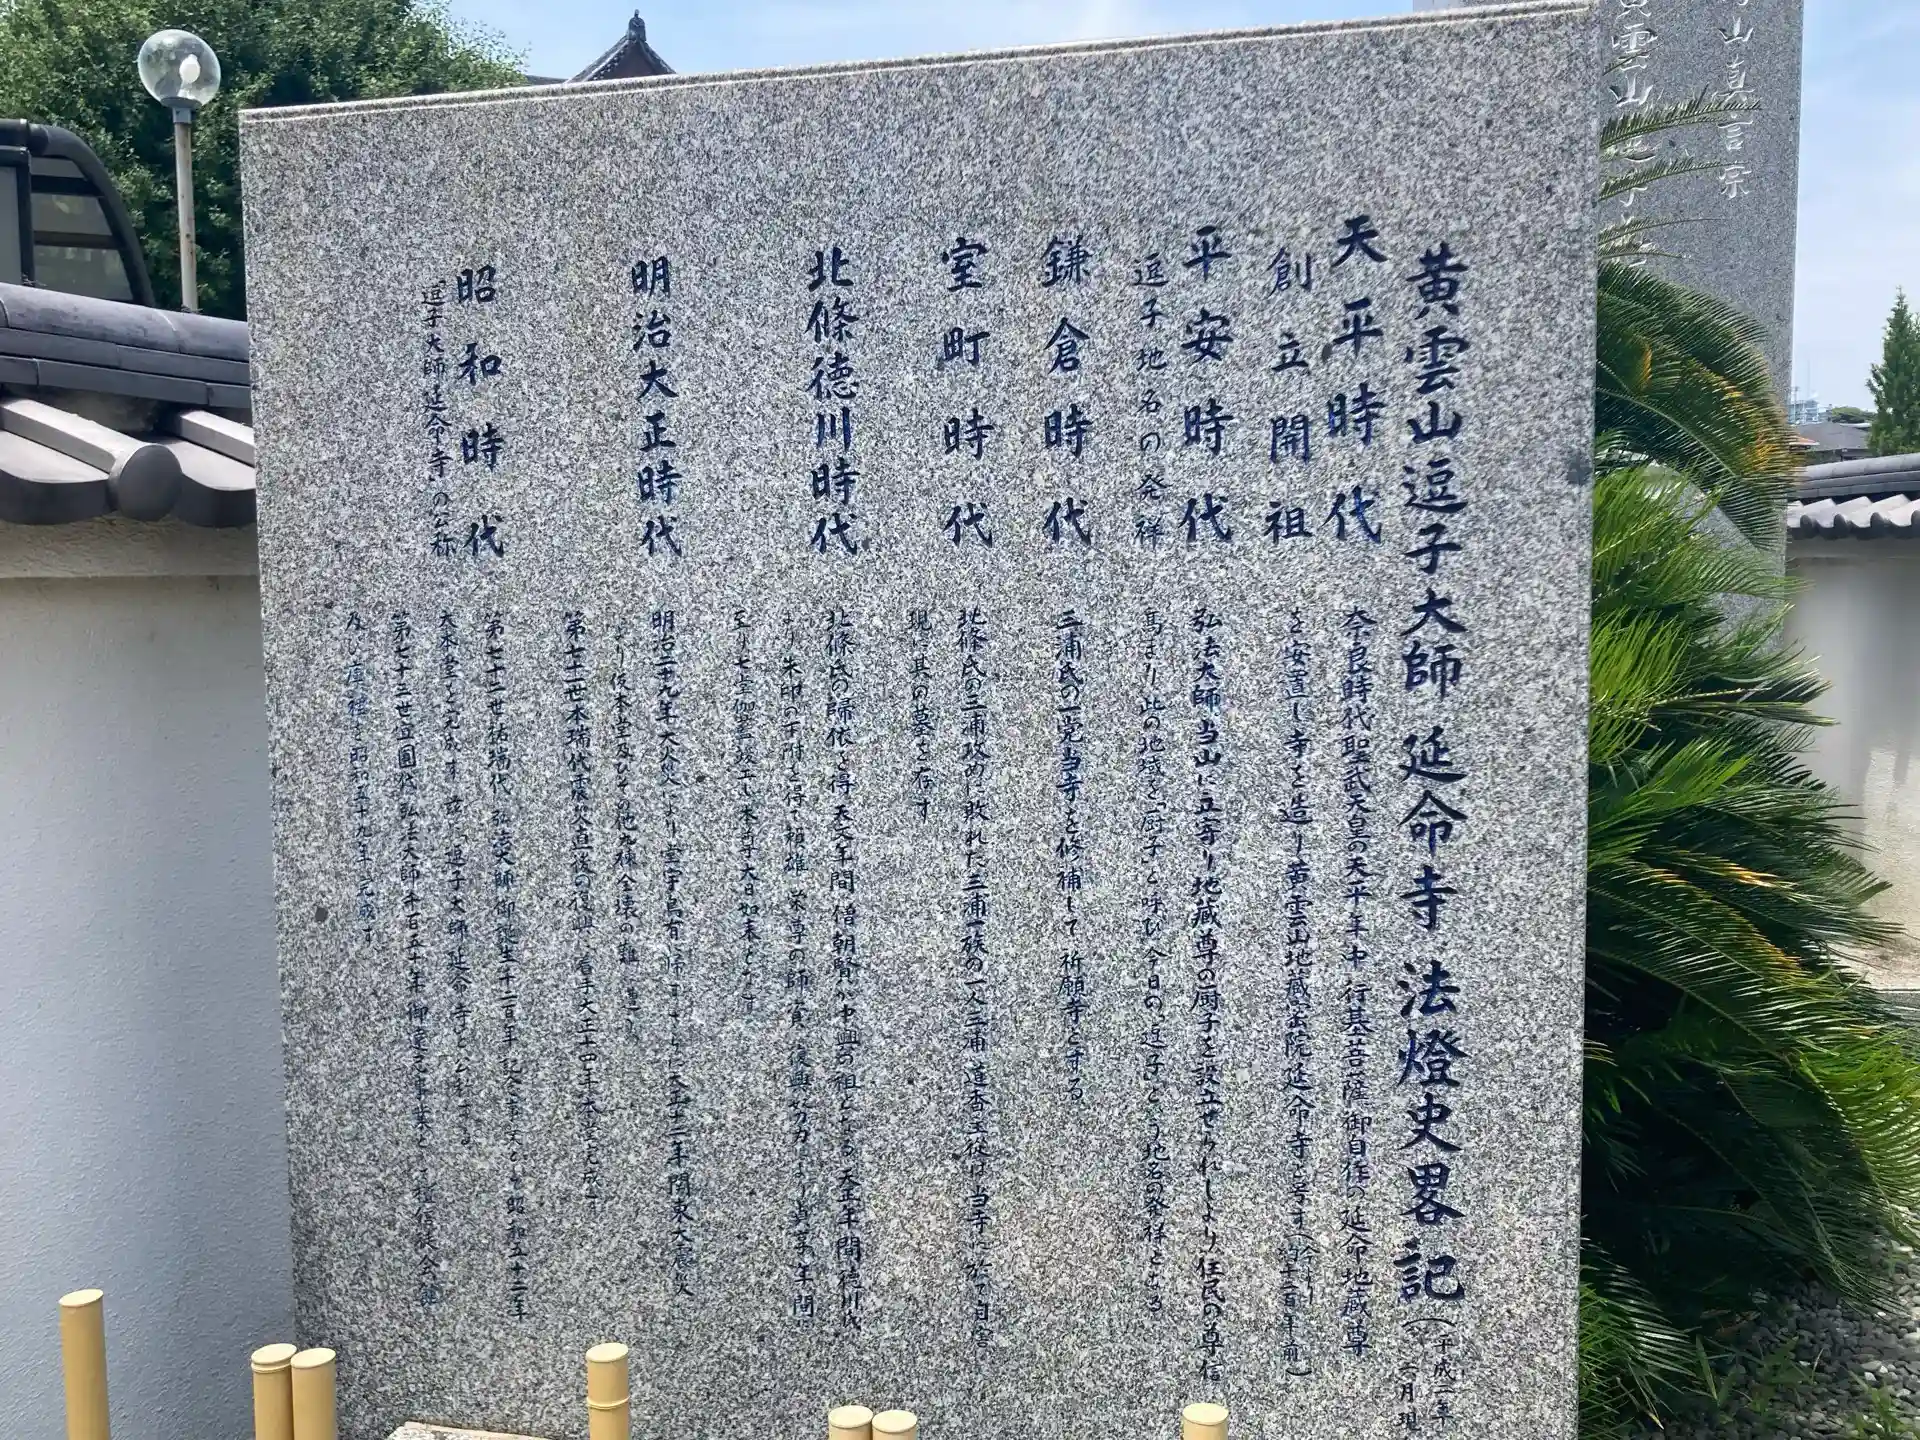 黄雲山逗子大師延命寺法燈史畧記
(平成二年
六月現
天平時代
創立開祖
奈良時代聖武天皇の天平年中行基菩薩御自作の延命地蔵尊
を安置し寺を造し黄雲山地蔵密院延命寺と号す(今より
約千二百年前)
平安時代
逗子地名の発祥
弘法大師当山に立寄り地蔵尊の厨子を設立せられしより住民の尊信
篤より此の地域を「厨子」と呼び今日の「逗子」とう地名の発祥となる
鎌倉時代
三浦氏の一党当寺を修補して祈願寺とする
室町時代
北條氏の三浦攻めに敗れた三浦一族の一人三浦道香主従は当寺に於て自害
現に其の墓を存す
北條徳川時代
北條氏の歸依を得天文年間僧朝賢が中興の祖となる天正年間徳川氏
より朱印の下附を得て頼雄栄尊の師資復興努力により貞享年間
至り七堂伽藍竣工し本尊大日如来となす
明治大正時代
明治二十九年大火災により堂宇烏有に帰す さらに大正十二年関東大震災
より仮本堂及びその他九棟全壊の難に遭う
第七十一世本瑞代震災直後の復興に着手大正十四年本堂完成す
昭和時代
「逗子大師延命寺」の公称
第七十二世祐瑞代弘法大師御誕生千二百年記念事業として昭和五十二年
大本堂を完成す 茲に逗子大師延命寺と公称する
第七十三世立圓代弘法大師千百五十年御遠忌事業として檀信徒会館
及び庫裡を昭和五十九年完成す
山真言宗
黄雲山逗子